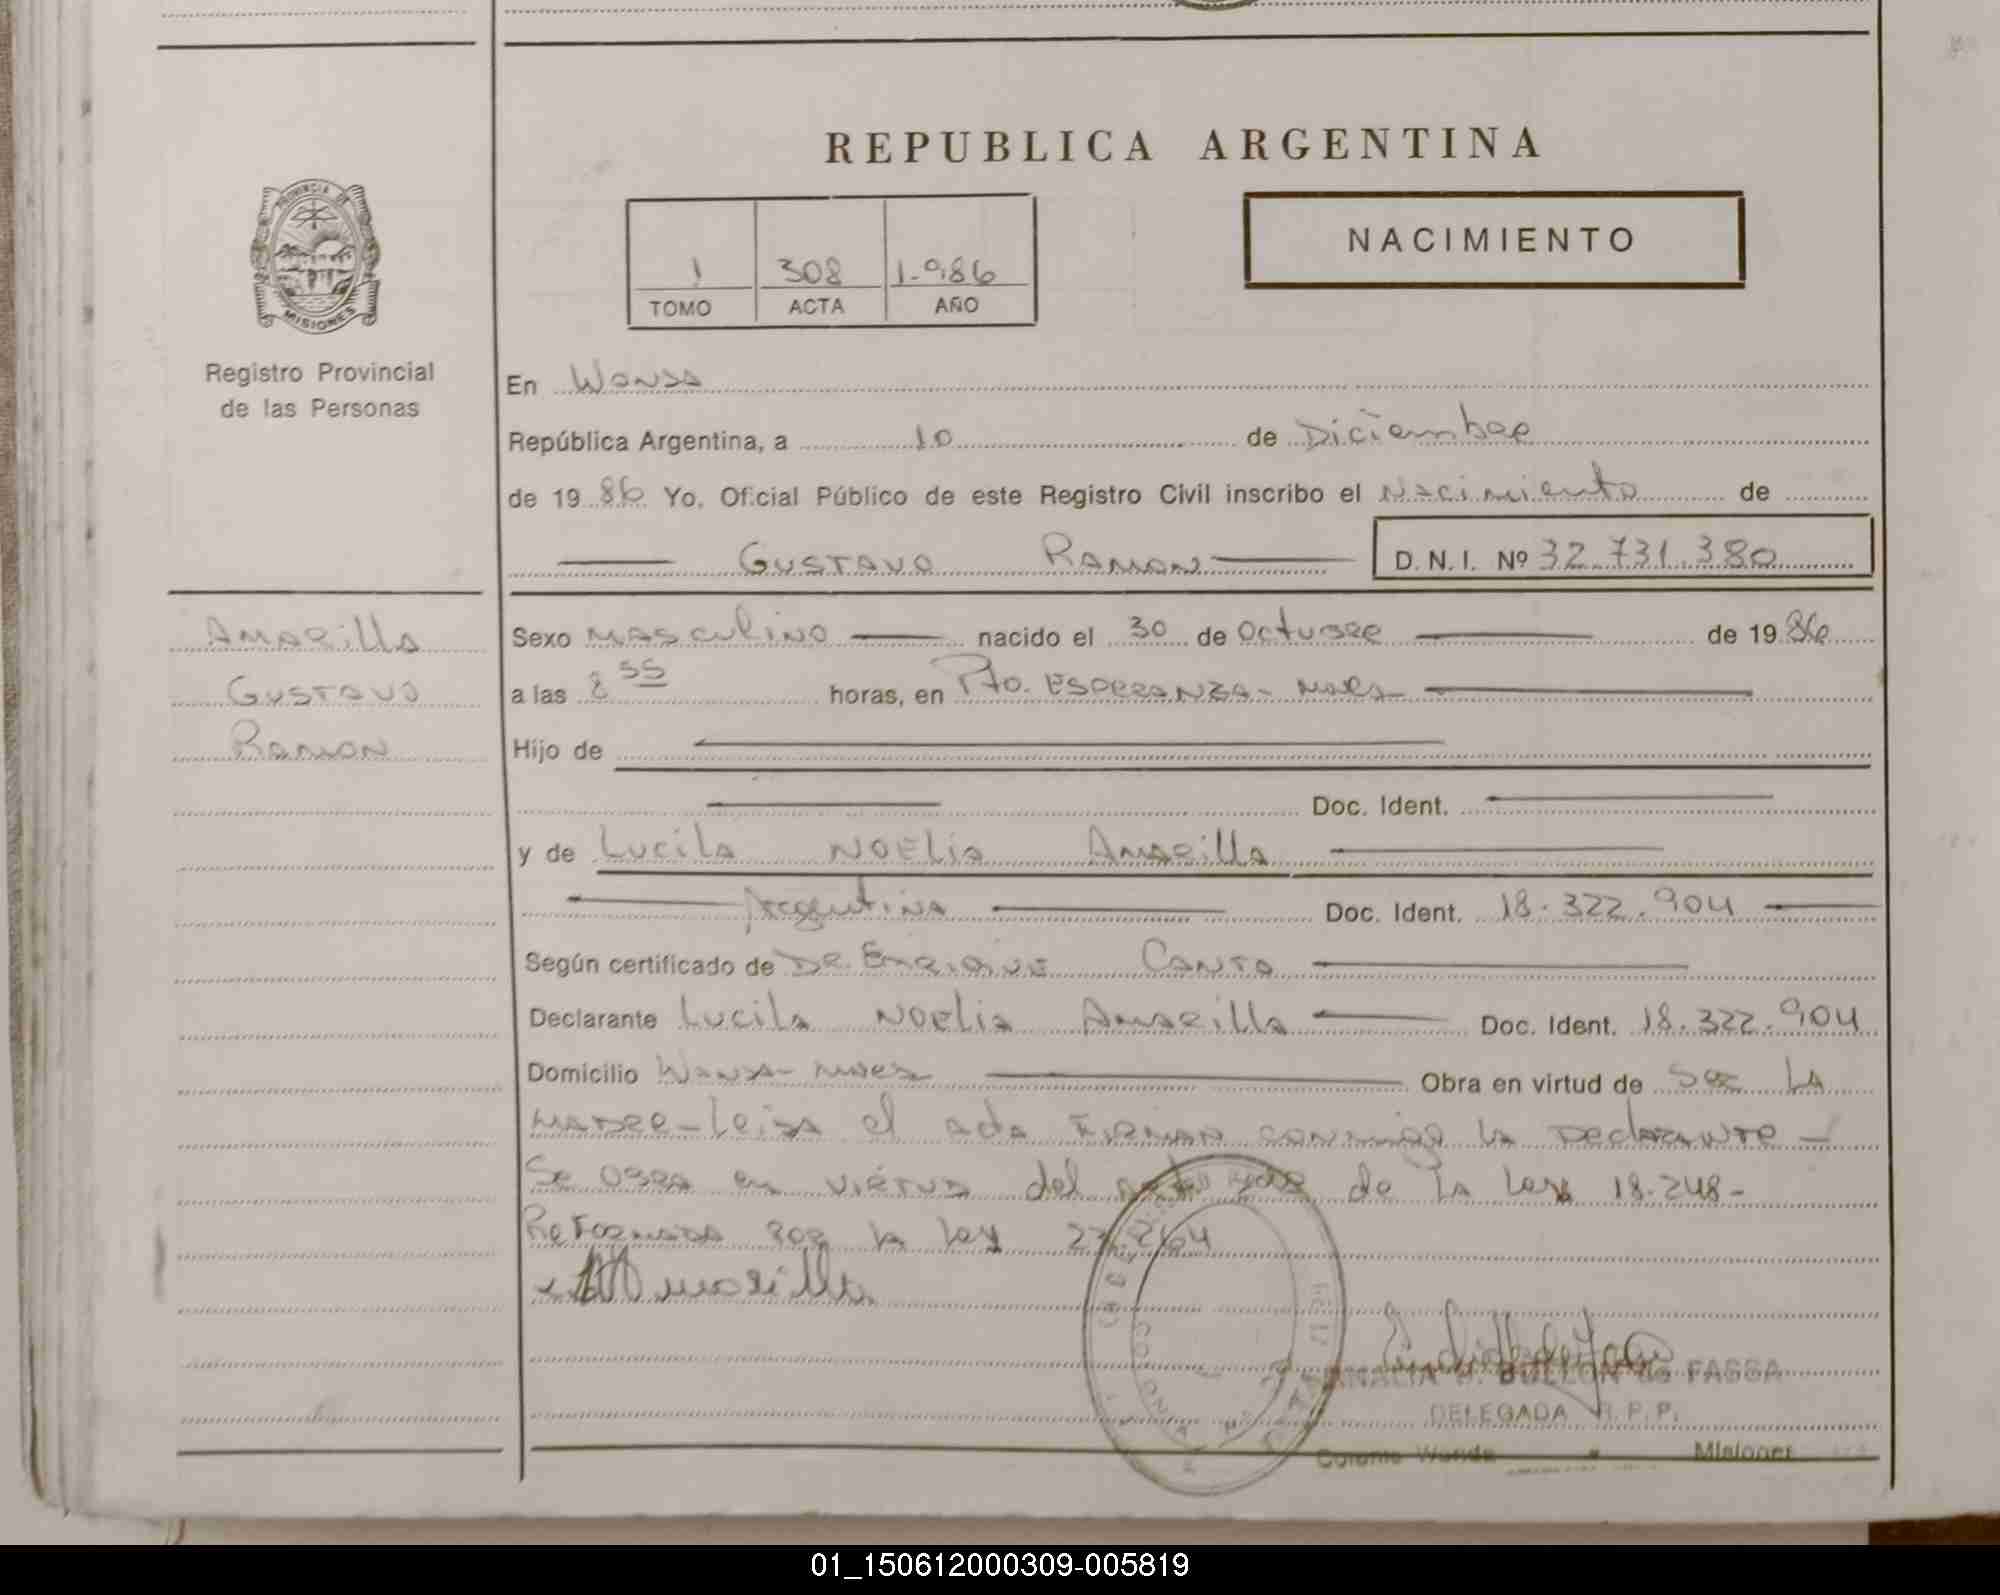 REPUBLICA ARGENTINA
NACIMIENTO
1 308 1.986
TOMO ACTA AÑO
PROVINCIA DE
MISIONES
Registro Provincial
de las Personas
En Wanda
República Argentina, a 10 de Diciembre
de 1986 Yo, Oficial Público de este Registro Civil inscribo el Nacimiento de
GUSTAVO RAMON D.N.I. Nº 32.731.380
Amarilla
Gustavo
Ramon
Sexo masculino nacido el 30 de Octubre de 1986
a las 8 55 horas, en Pto. ESPERANZA - Mnes
Hijo de
Doc. Ident.
y de Lucila NOELia Amarilla
Argentina Doc. Ident. 18.322.904
Según certificado de DR. Enrique Canto
Declarante Lucila NOElia Amarilla Doc. Ident. 18.322.904
Domicilio Wanda - Mnes Obra en virtud de Ser LA
MADRE - Leida el acta FIRMAN conmigo la Declarante -
Se OBRA en VIRTUD del de la Ley 18.248 -
Reformada POR la Ley 23.264
Amarilla
DELEGADA R.P.P.
Colonia Wanda Misiones
01_150612000309-005819